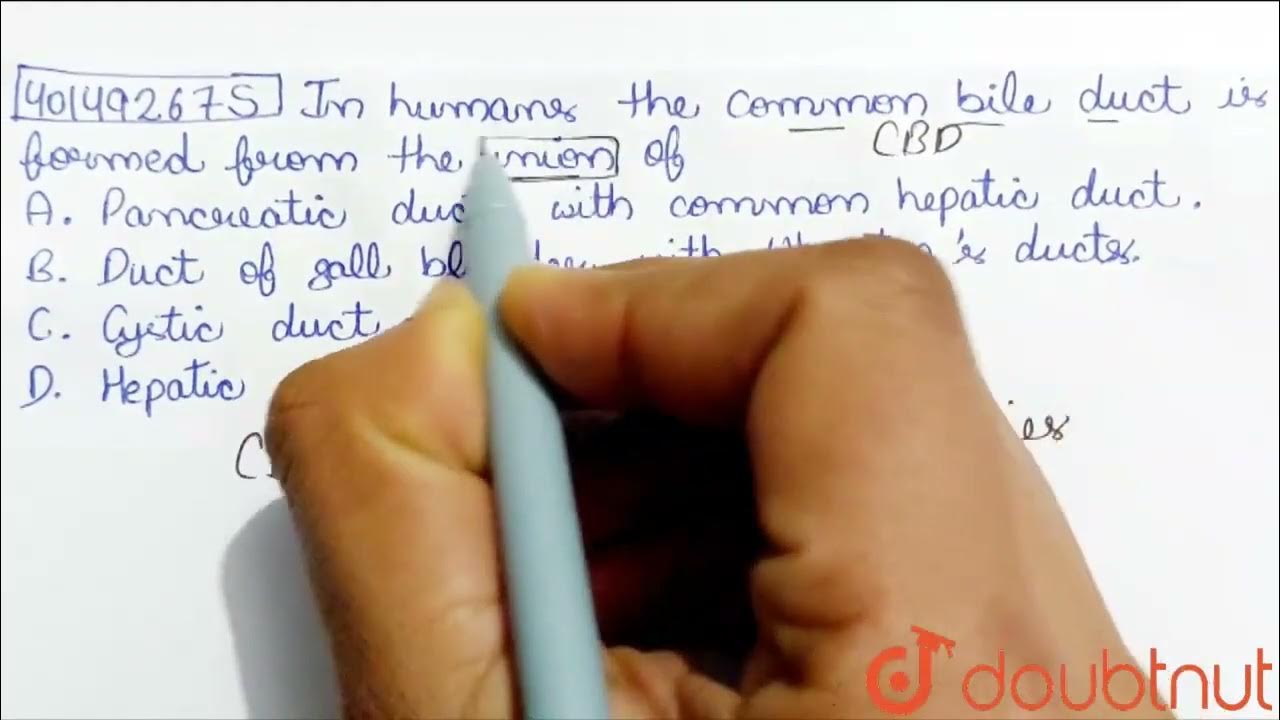 40149267S In humans the common bile duct is
CBD
formed from the union of
A. Pancreatic duc with common hepatic duct.
B. Duct of gall bl with 's ducts.
C. Cystic duct
D. Hepatic
es
doubtnut